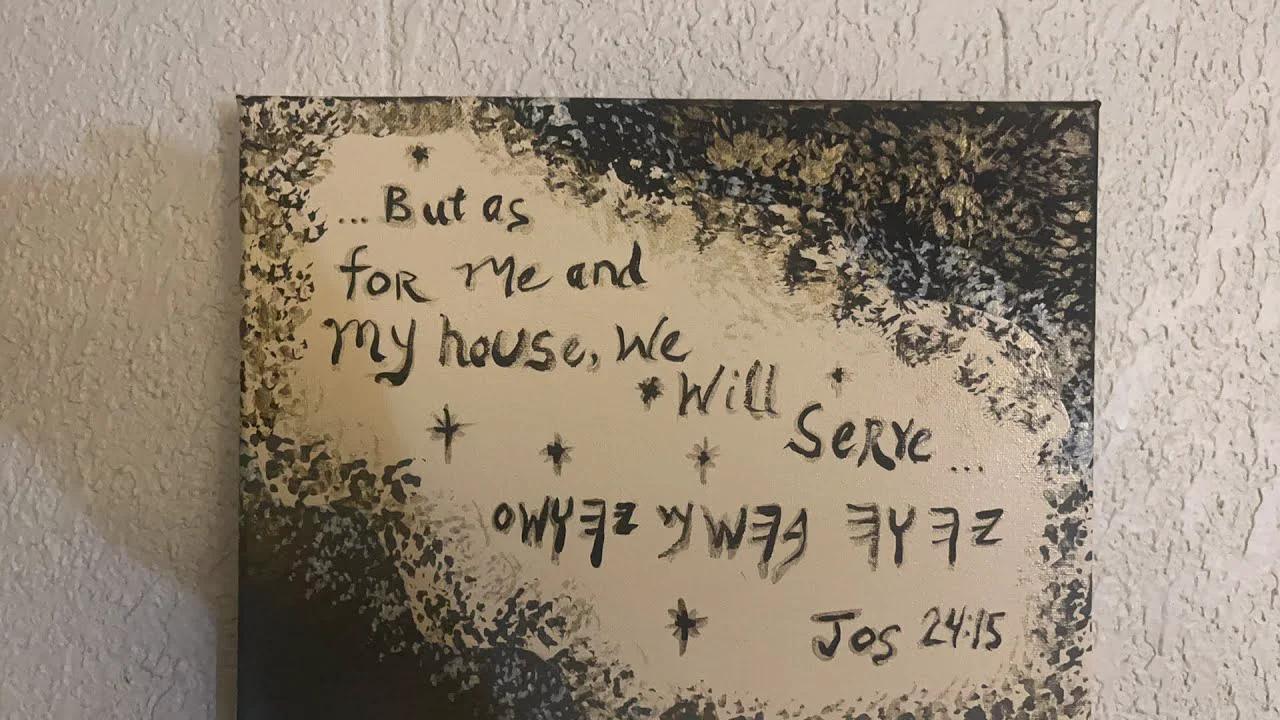 ...But as
for me and
my house, we
will
serve...
𐤉𐤄𐤅𐤄 𐤁𐤄𐤔𐤌 𐤉𐤄𐤅𐤔𐤏
Jos 24:15